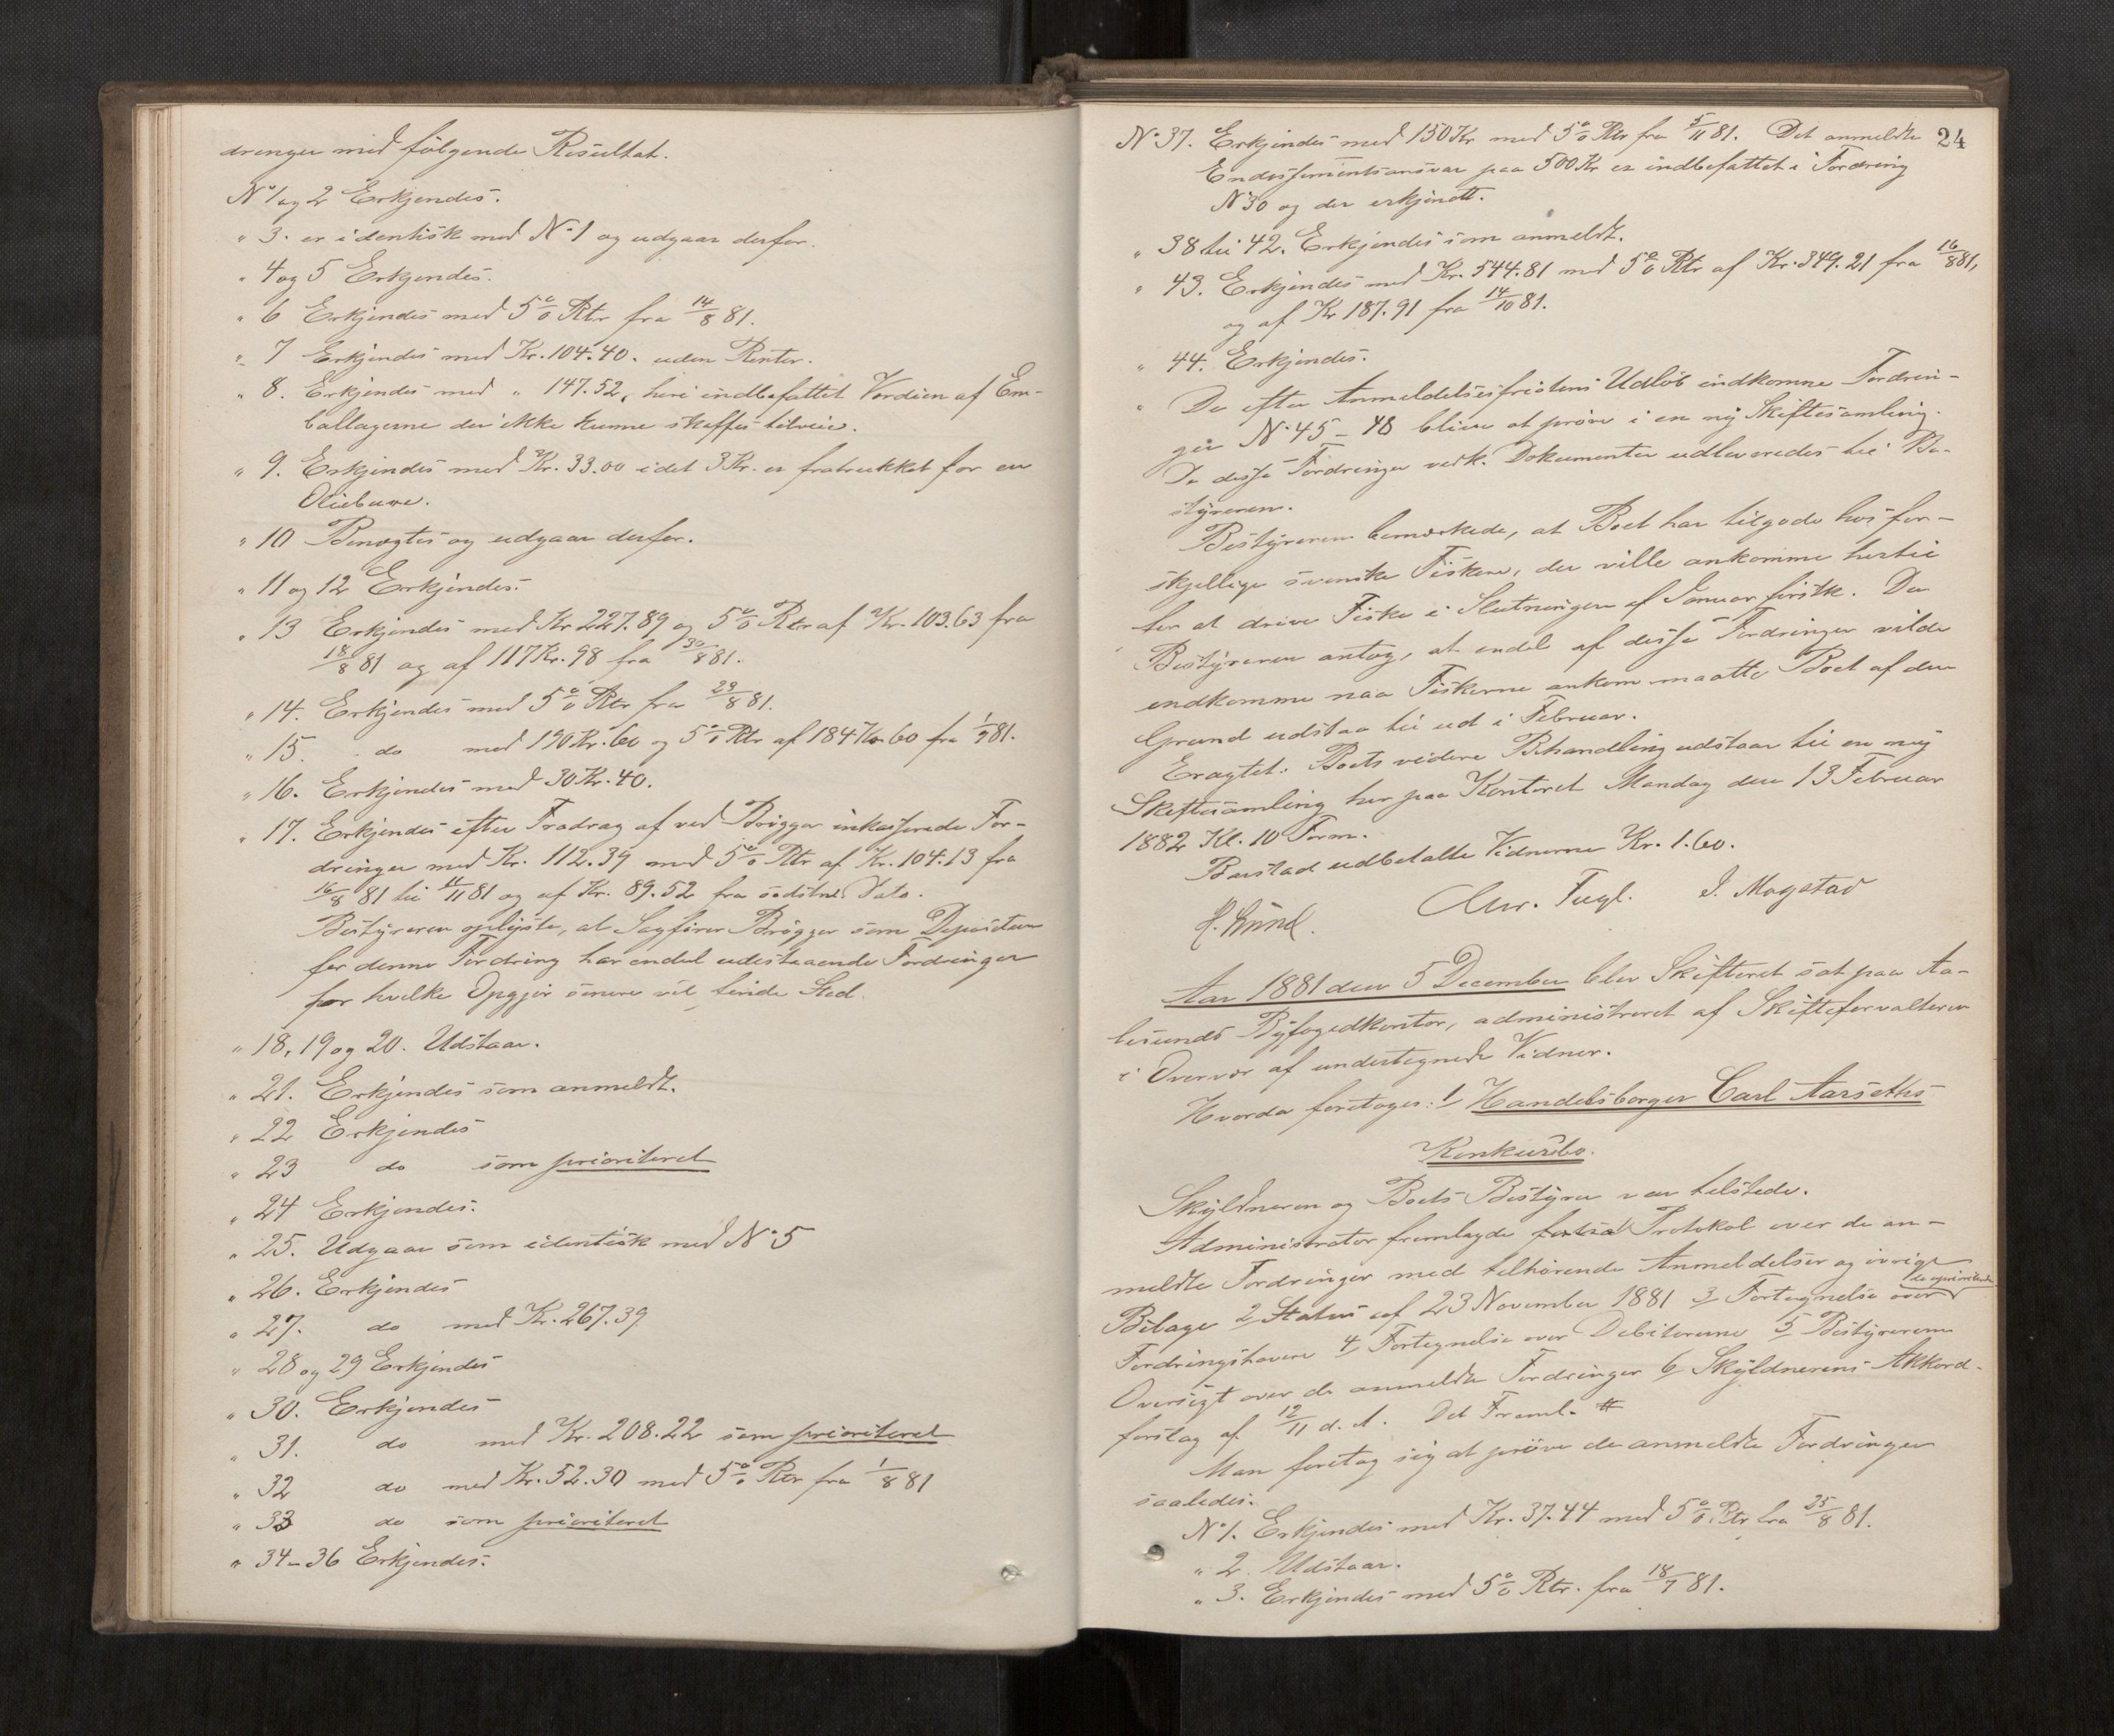 dringer med følgende Resultat.
No 1 og 2 Erkjendes.
" 3. er identisk med No 1 og udgaar derfor.
" 4 og 5 Erkjendes.
" 6 Erkjendes med 5% Rtr fra 14/8 81.
" 7 Erkjendes med Kr. 104.40. uden Renter.
" 8. Erkjendes med " 147.52, heri indbefattet Værdien af Em-
ballagerne der ikke kunne skaffes tilveie.
" 9. Erkjendes med Kr. 33.00 idet 3 Kr. er fratrukket for en
Oliebuxe.
" 10 Benægtes og udgaar derfor.
" 11 og 12 Erkjendes.
" 13 Erkjendes med Kr 227.89 og 5% Rtr af Kr. 103.63 fra
18/8 81 og af 117 Kr. 98 fra 30/8 81.
" 14. Erkjendes med 5% Rtr fra 23/8 81.
" 15. do med 190 Kr. 60 og 5% Rtr af 184 Kr 60 fra 1/9 81.
" 16. Erkjendes med 30 Kr. 40.
" 17. Erkjendes efter Fradrag af ved Brøgger inkasserede For-
dringer med Kr. 112.39 med 5% Rtr af Kr. 104.13 fra
16/8 81 til 11/11 81 og af Kr. 89.52 fra sidstne Dato.
Bestyreren oplyste, at Sagfører Brøgger som
for denne Fordring har endel udestaaende Fordringer
for hvilke Opgjør senere vil finde Sted.
" 18, 19 og 20. Udstaar.
" 21. Erkjendes som anmeldt.
" 22 Erkjendes
" 23 do som prioriteret
" 24 Erkjendes.
" 25. Udgaar som identisk med No 5
" 26. Erkjendes
" 27. do med Kr. 267.39
" 28 og 29 Erkjendes
" 30. Erkjendes
" 31. do med Kr. 208.22 som prioriteret
" 32 do med Kr. 52.30 med 5% Rtr fra 1/8 81
" 33 do som prioriteret
" 34-36 Erkjendes.
24
No 37. Erkjendes med 150 Kr med 5% Rtr fra 5/11 81. Det anmeldte
Endossementsansvar paa 500 Kr er indbefattet i Fordring
No 30 og der erkjendt.
" 38 til 42. Erkjendes som anmeldt.
" 43. Erkjendes med Kr. 544.81 med 5% Rtr af Kr. 349.21 fra 16/8 81,
og af Kr 187.91 fra 14/10 81.
" 44. Erkjendes.
" De efter Anmeldelsesfristens Udløb indkomne Fordrin-
ger No 45-48 bliver at prøve i en ny Skiftesamling.
De disse Fordringer vedk. Dokumenter udleveredes til Be-
styreren.
Bestyreren bemærkede, at Boet har tilgode hos for-
skjellige svenske Fiskere, der ville ankomme hertil
for at drive Fiske i Slutningen af Januar førstk. Da
Bestyreren antog, at endel af disse Fordringer vilde
indkomme naar Fiskerne ankom maatte Boet af den
Grund udstaa til ud i Februar.
Eragtet: Boets videre Behandling udstaar til en ny
Skiftesamling her paa Kontoret Mandag den 13 Februar
1882 Kl. 10 Form.
Barstad udbetalte Vidnerne Kr. 1.60.
Chr. Fugl. I. Magstad
Aar 1881 den 5 December blev Skifteret sat paa Aa-
lesunds Byfogedkontor, administreret af Skifteforvalteren
i Overvær af undertegnede Vidner.
Hvorda foretoges: 1/ Handelsborger Carl Aarseths
Konkursbo.
Skyldneren og Boets Bestyrer var tilstede.
Administrator fremlagde Protokol over de an-
meldte Fordringer med tilhørende Anmeldelser og øvrige
Bilage 2/ Status af 23 November 1881 3/ Fortegnelse over
Fordringshavere 4/ Fortegnelse over Debitorerne 5/ Bestyrerens
Oversigt over de anmeldte Fordringer 6/ Skyldnerens Akkord-
forslag af 12/11 d. A. Det Freml. #
Man foretog sig at prøve de anmeldte Fordringer
saaledes.
No 1. Erkjendes med Kr. 37.44 med 5% Rtr fra 25/8 81.
" 2. Udstaar.
" 3. Erkjendes med 5% Rtr. fra 18/7 81.